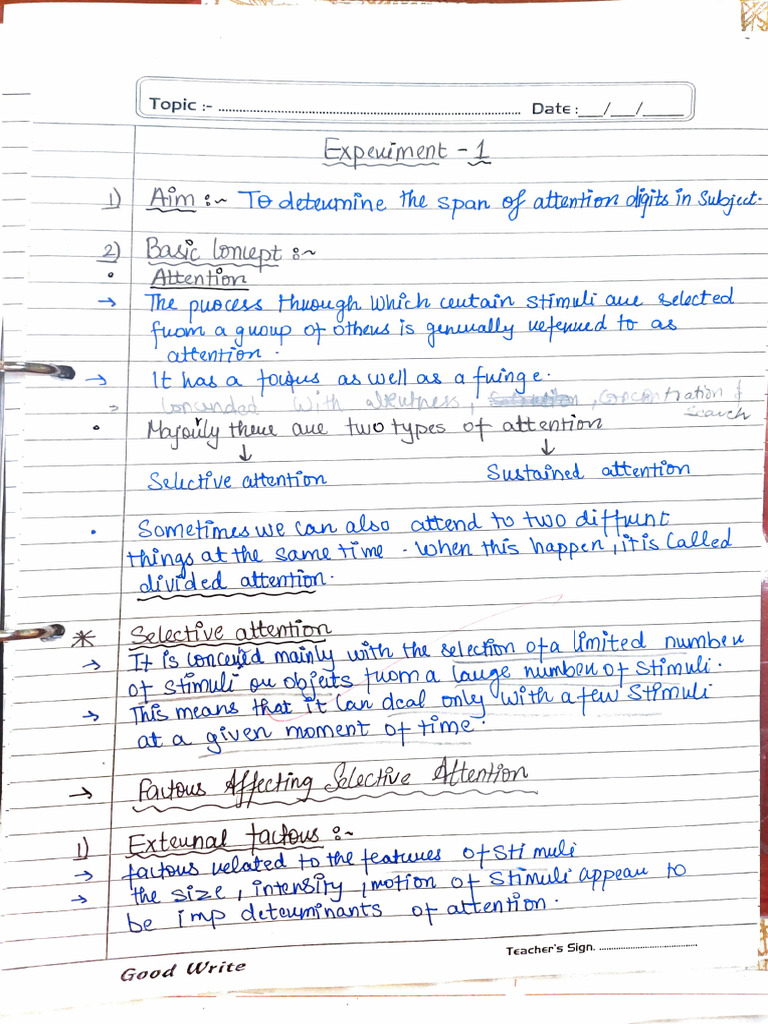 Topic :- ........................ Date : __/__/____
Experiment - 1
1) Aim :~ To determine the span of attention digits in subject.
2) Basic Concept :~
• Attention
→ The process through which certain stimuli are selected
from a group of others is generally referred to as
attention.
→ It has a focus as well as a fringe.
with alertness, , concentration &
search
• Majorly there are two types of attention
↓ ↓
Selective attention Sustained attention
• Sometimes we can also attend to two diffrent
things at the same time. When this happen, it is called
divided attention.
* Selective attention
→ It is concerned mainly with the selection of a limited number
of stimuli or objects from a large number of stimuli.
→ This means that it can deal only with a few stimuli
at a given moment of time.
→ Factors Affecting Selective Attention
1) External factors :~
→ factors related to the features of stimuli
→ the size, intensity, motion of stimuli appear to
be imp determinants of attention.
Teacher's Sign. ........................
Good Write